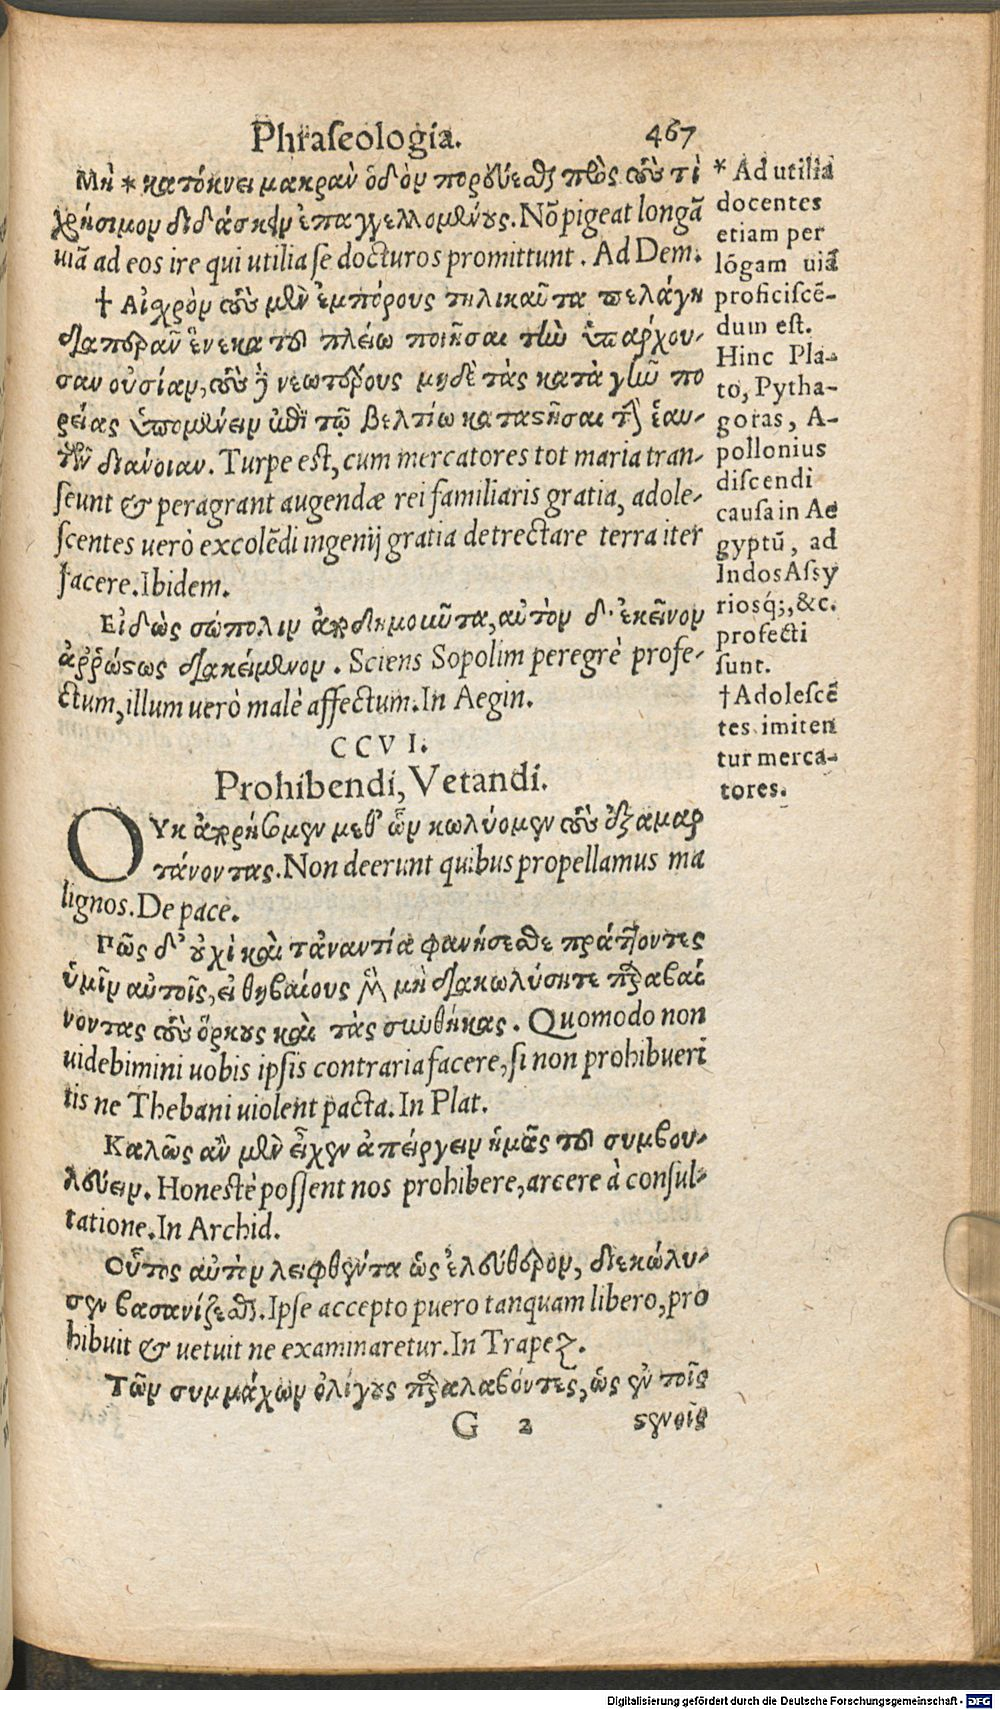 Phraseologia. 467
Μὴ * κατόκνει μακρὰν ὁδὸν πορεύεσθαι πρὸς τοὺς τὶ
χρήσιμον διδάσκειν ἐπαγγελλομένους. Nõ pigeat longã
uiã ad eos ire qui utilia se docturos promittunt. Ad Dem.
† Αἰσχρὸν τοὺς μὲν ἐμπόρους τηλικαῦτα πελάγη
διαπερᾶν ἕνεκα τοῦ πλείω ποιῆσαι τὴν ὑπάρχου-
σαν οὐσίαν, τοὺς δὲ νεωτέρους μηδὲ τὰς κατὰ γῆν πο
ρείας ὑπομένειν ἐπὶ τῷ βελτίω καταστῆσαι τὴν ἑαυ-
τῶν διάνοιαν. Turpe est, cum mercatores tot maria tran-
seunt & peragrant augendæ rei familiaris gratia, adole-
scentes uerò excolẽdi ingenij gratia detrectare terra iter
facere. Ibidem.
Εἰδὼς σώπολιν ἀποδημοῦντα, αὐτὸν δ' ἐκεῖνον
ἀῤῥώστως διακείμενον. Sciens Sopolim peregrè profe-
ctum, illum uerò malè affectum. In Aegin.
CCVI.
Prohibendi, Vetandi.
ΟΥκ ἀπορήσομεν μεθ' ὧν κωλύομεν τοὺς ἐξαμαρ
τάνοντας. Non deerunt quibus propellamus ma
lignos. De pace.
Πῶς δ' οὐχὶ καὶ τἀναντία φανήσεσθε πράττοντες
ὑμῖν αὐτοῖς, εἰ θηβαίους μὲν μὴ διακωλύσητε παραβαί
νοντας τοὺς ὅρκους καὶ τὰς συνθήκας. Quomodo non
uidebimini uobis ipsis contraria facere, si non prohibueri
tis ne Thebani uiolent pacta. In Plat.
Καλῶς ἂν μὲν εἶχεν ἀπείργειν ἡμᾶς τοῦ συμβου-
λεύειν. Honestè possent nos prohibere, arcere à consul-
tatione. In Archid.
Οὗτος αὐτὸν λειφθέντα ὡς ἐλεύθερον, διεκώλυ-
σεν βασανίζεσθαι. Ipse accepto puero tanquam libero, pro
hibuit & uetuit ne examinaretur. In Trapez.
Τῶν συμμάχων ὀλίγους παραλαβόντες, ὡς ἐν τοῖς
G 2 στενοῖς
* Ad utilia
docentes
etiam per
lõgam uiã
proficiscẽ-
dum est.
Hinc Pla-
to, Pytha-
goras, A-
pollonius
discendi
causa in Ae
gyptũ, ad
Indos Assy
riosq;, &c.
profecti
sunt.
† Adolescẽ
tes imiten
tur merca-
tores.
Digitalisierung gefördert durch die Deutsche Forschungsgemeinschaft - DFG